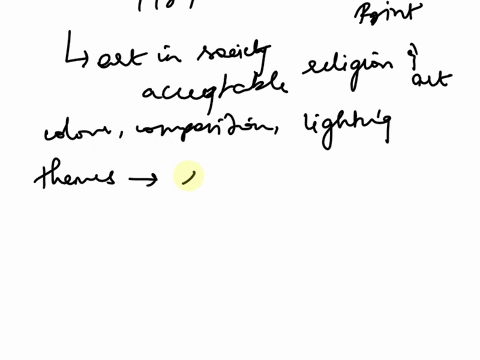 Point
↳ art in society religion &
acceptable art
colour, composition, lighting
themes →